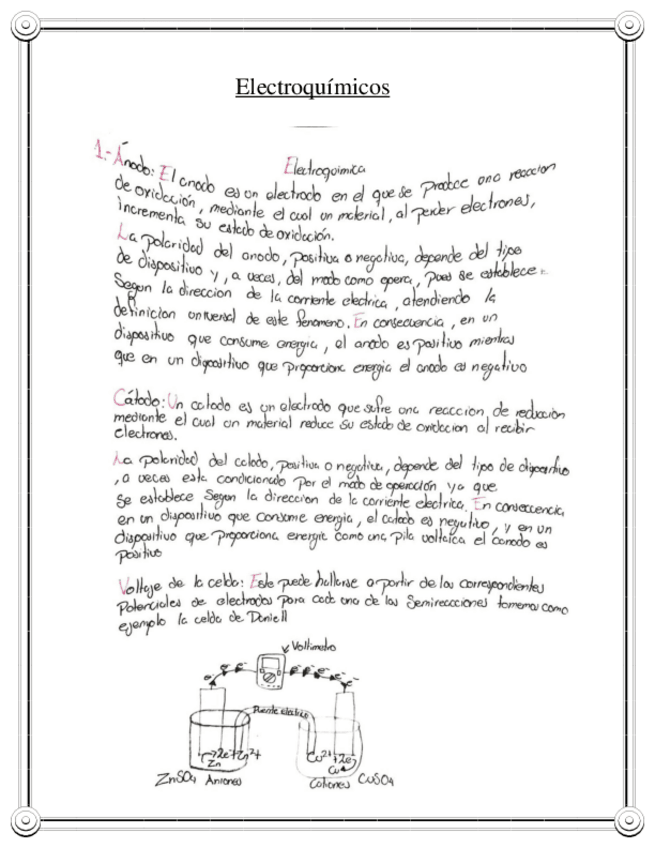 Electroquímicos
Electroquimica
1.- Ánodo: El anodo es un electrodo en el que se produce una reaccion
de oxidación, mediante el cual un material, al perder electrones,
incrementa su estado de oxidación.
La polaridad del anodo, positiva o negativa, depende del tipo
de dispositivo y, a veces, del modo como opera, pues se establece
Segun la direccion de la corriente electrica, atendiendo la
definicion universal de este fenomeno. En consecuencia, en un
dispositivo que consume energia, el anodo es positivo mientras
que en un dispositivo que proporciona energia el anodo es negativo
Cátodo: Un catodo es un electrodo que sufre una reaccion de reducción
mediante el cual un material reduce su estado de oxidacion al recibir
electrones.
La polaridad del catodo, positiva o negativa, depende del tipo de dispositivo
, a veces esta condicionado por el modo de operacción ya que
se establece Segun la direccion de la corriente electrica. En consecuencia,
en un dispositivo que consume energia, el catodo es negativo, y en un
dispositivo que proporciona energia como una pila voltaica el canodo es
positivo
Voltaje de la celda: Este puede hallarse a partir de los correspondientes
Potenciales de electrodos para cada una de las Semireacciones tomemos como
ejemplo la celda de Daniell
Voltimetro
e- e- e- e- e- e-
Puente electrico
→2e+Zn2+
Zn
Cu2+ +2e
Cu
ZnSO4 Aniones
Cationes CuSO4